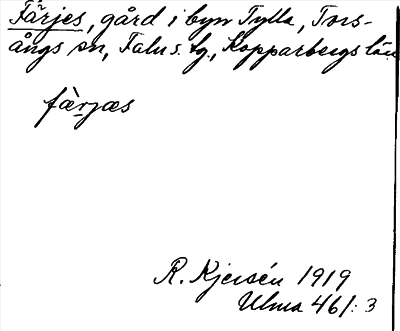 Färjes, gård i byn Tylla, Tors-
ångs sn, Falu s. lg., Kopparbergs län
fàrjæs
R. Kjersén 1919
Ulma 461:3